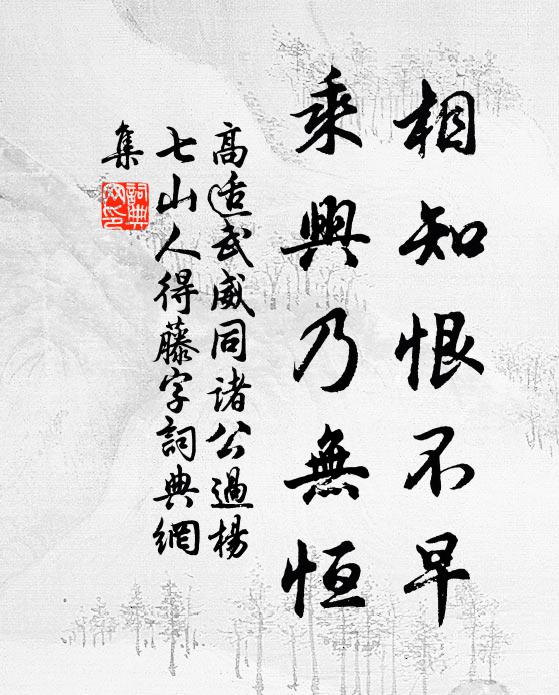 相知恨不早
乘興乃無恒
高适武威同諸公過楊
七山人得藤字詞典網
集
詞典
網印